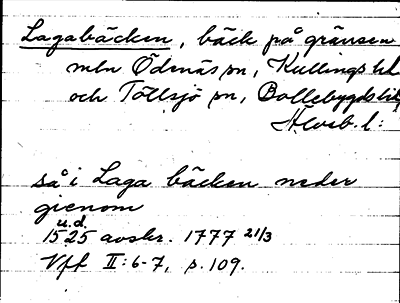 Lagabäcken, bäck på gränsen
mln Ödenäs sn, Kullings hd
och Töllsjö sn, Bollebygds hd,
Älvsb. l:
så i Laga bäcken neder
gienom
u.d.
1525 avskr. 1777 21/3
Vff II:6-7, p. 109.